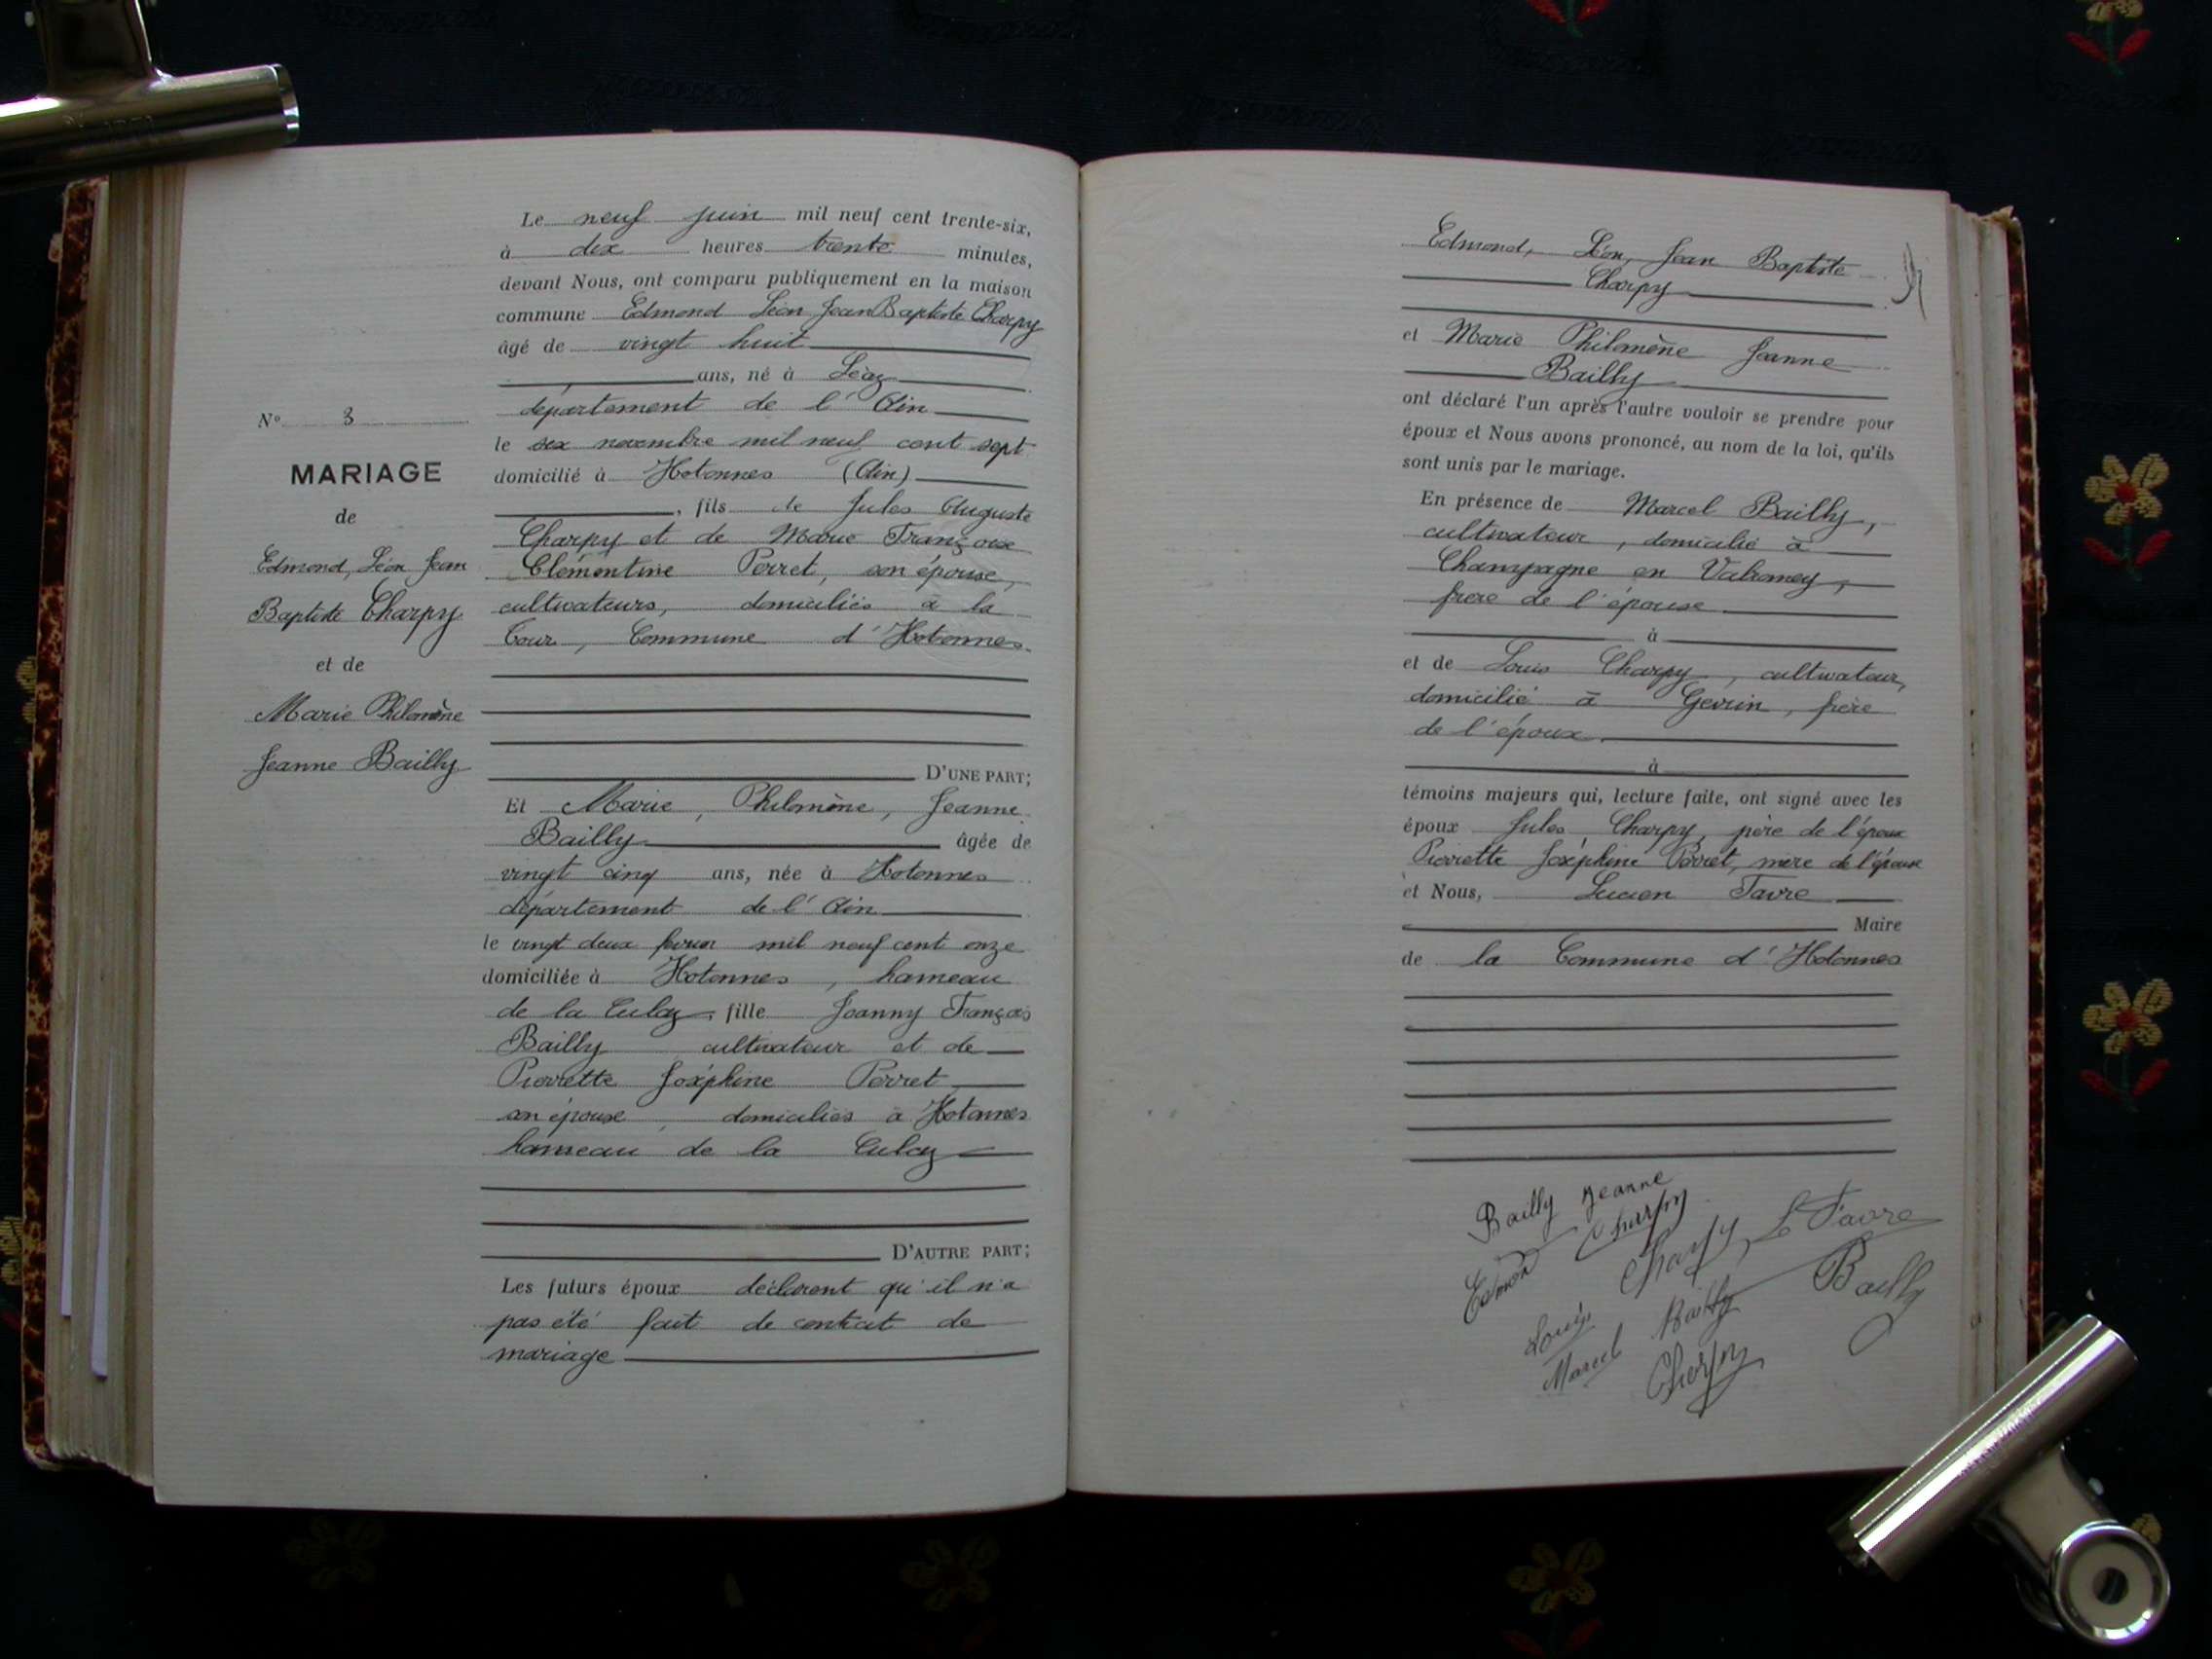 Le neuf juin mil neuf cent trente-six,
à dix heures trente minutes,
devant Nous, ont comparu publiquement en la maison
commune Edmond Léon Jean Baptiste Charpy
âgé de vingt huit
ans, né à Léaz
département de l'Ain
le six novembre mil neuf cent sept
domicilié à Hotonnes (Ain)
, fils de Jules Auguste
Charpy et de Marie Françoise
Clémentine Perret, son épouse,
cultivateurs, domiciliés à la
Cour, Commune d'Hotonnes.
D'UNE PART;
Et Marie, Philomène, Jeanne
Bailly âgée de
vingt cinq ans, née à Hotonnes
département de l'Ain
le vingt deux mil neuf cent onze
domiciliée à Hotonnes, hameau
de la, fille Joanny François
Bailly cultivateur et de
Pierrette Joséphine Perret
son épouse, domiciliés à Hotonnes
hameau de la
D'AUTRE PART;
Les futurs époux déclarent qu'il n'a
pas été fait de contrat de
mariage
N° 3
MARIAGE
de
Edmond, Léon Jean
Baptiste Charpy
et de
Marie Philomène
Jeanne Bailly
Edmond, Léon, Jean Baptiste
Charpy
et Marie Philomène Jeanne
Bailly
ont déclaré l'un après l'autre vouloir se prendre pour
époux et Nous avons prononcé, au nom de la loi, qu'ils
sont unis par le mariage.
En présence de Marcel Bailly,
cultivateur, domicilié à
Champagne en Valromey,
frère de l'épouse
à
et de Louis Charpy, cultivateur,
domicilié à Gevrin, frère
de l'époux.
à
témoins majeurs qui, lecture faite, ont signé avec les
époux Jules Charpy, père de l'époux
Pierrette Joséphine Perret, mère de l'épouse
et Nous, Lucien Favre
Maire
de la Commune d'Hotonnes
Bailly Jeanne
Edmond Charpy
L Favre
Louis Charpy
Bailly
Marcel Bailly
Charpy